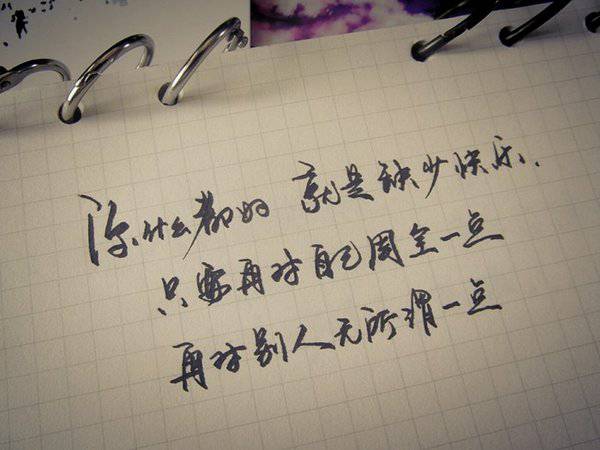 你什么都好 就是缺少快乐.
只要再对自己周全一点
再对别人无所谓一点